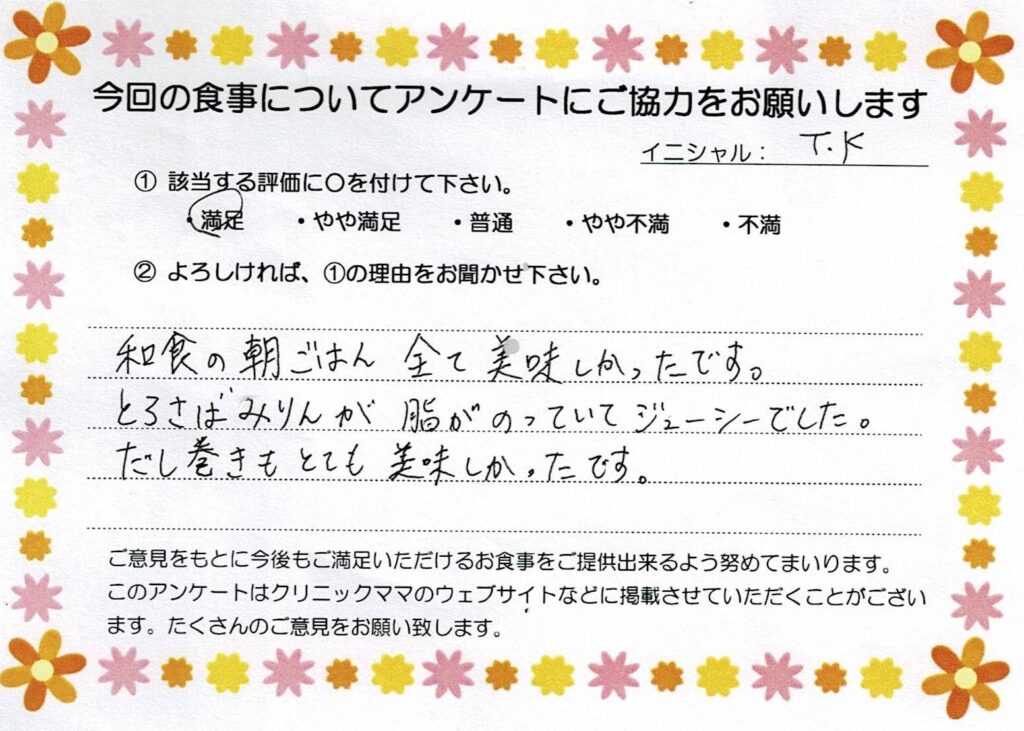 今回の食事についてアンケートにご協力をお願いします
イニシャル： T.K
① 該当する評価に〇を付けて下さい。
・満足 ・やや満足 ・普通 ・やや不満 ・不満
② よろしければ、①の理由をお聞かせ下さい。
和食の朝ごはん 全て 美味しかったです。
とろさばみりんが 脂がのっていてジューシーでした。
だし巻きもとても 美味しかったです。
ご意見をもとに今後もご満足いただけるお食事をご提供出来るよう努めてまいります。
このアンケートはクリニックママのウェブサイトなどに掲載させていただくことがござい
ます。たくさんのご意見をお願い致します。